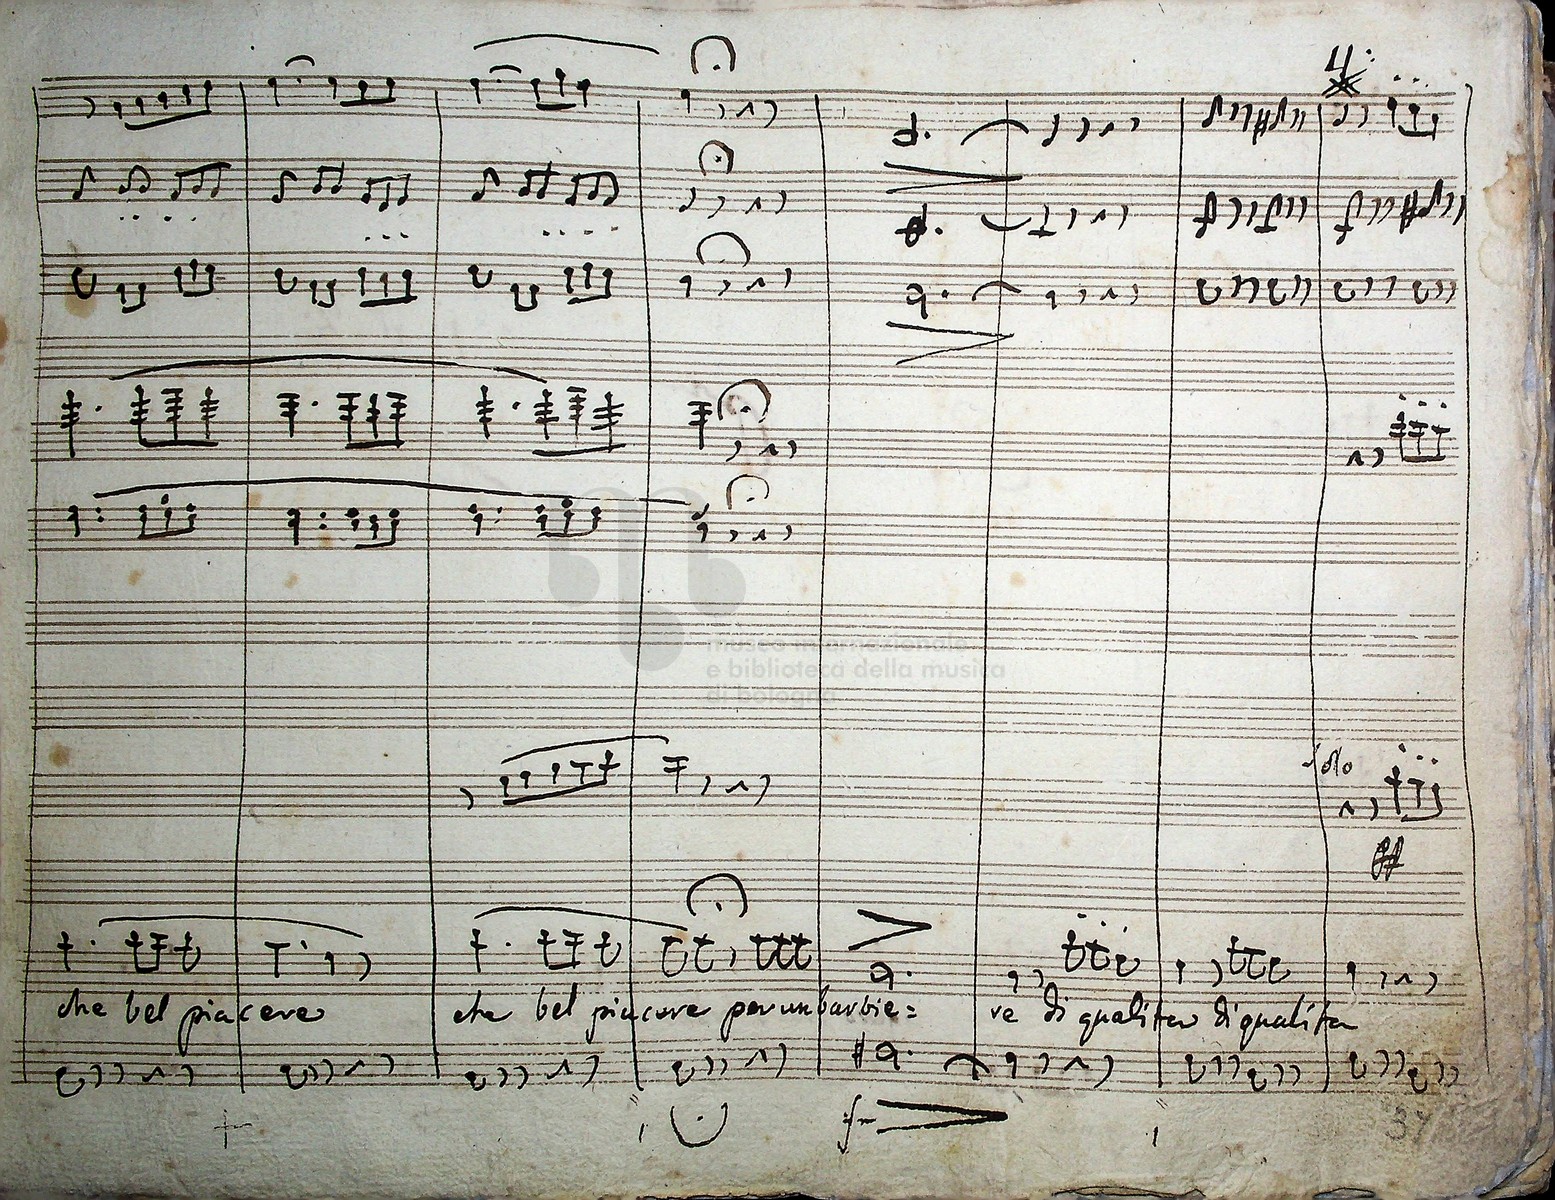 4.
museo internazionale
e biblioteca della musica
di bologna
Solo
ff
che bel piacere che bel piacere per un barbie= re di qualita di qualita
37